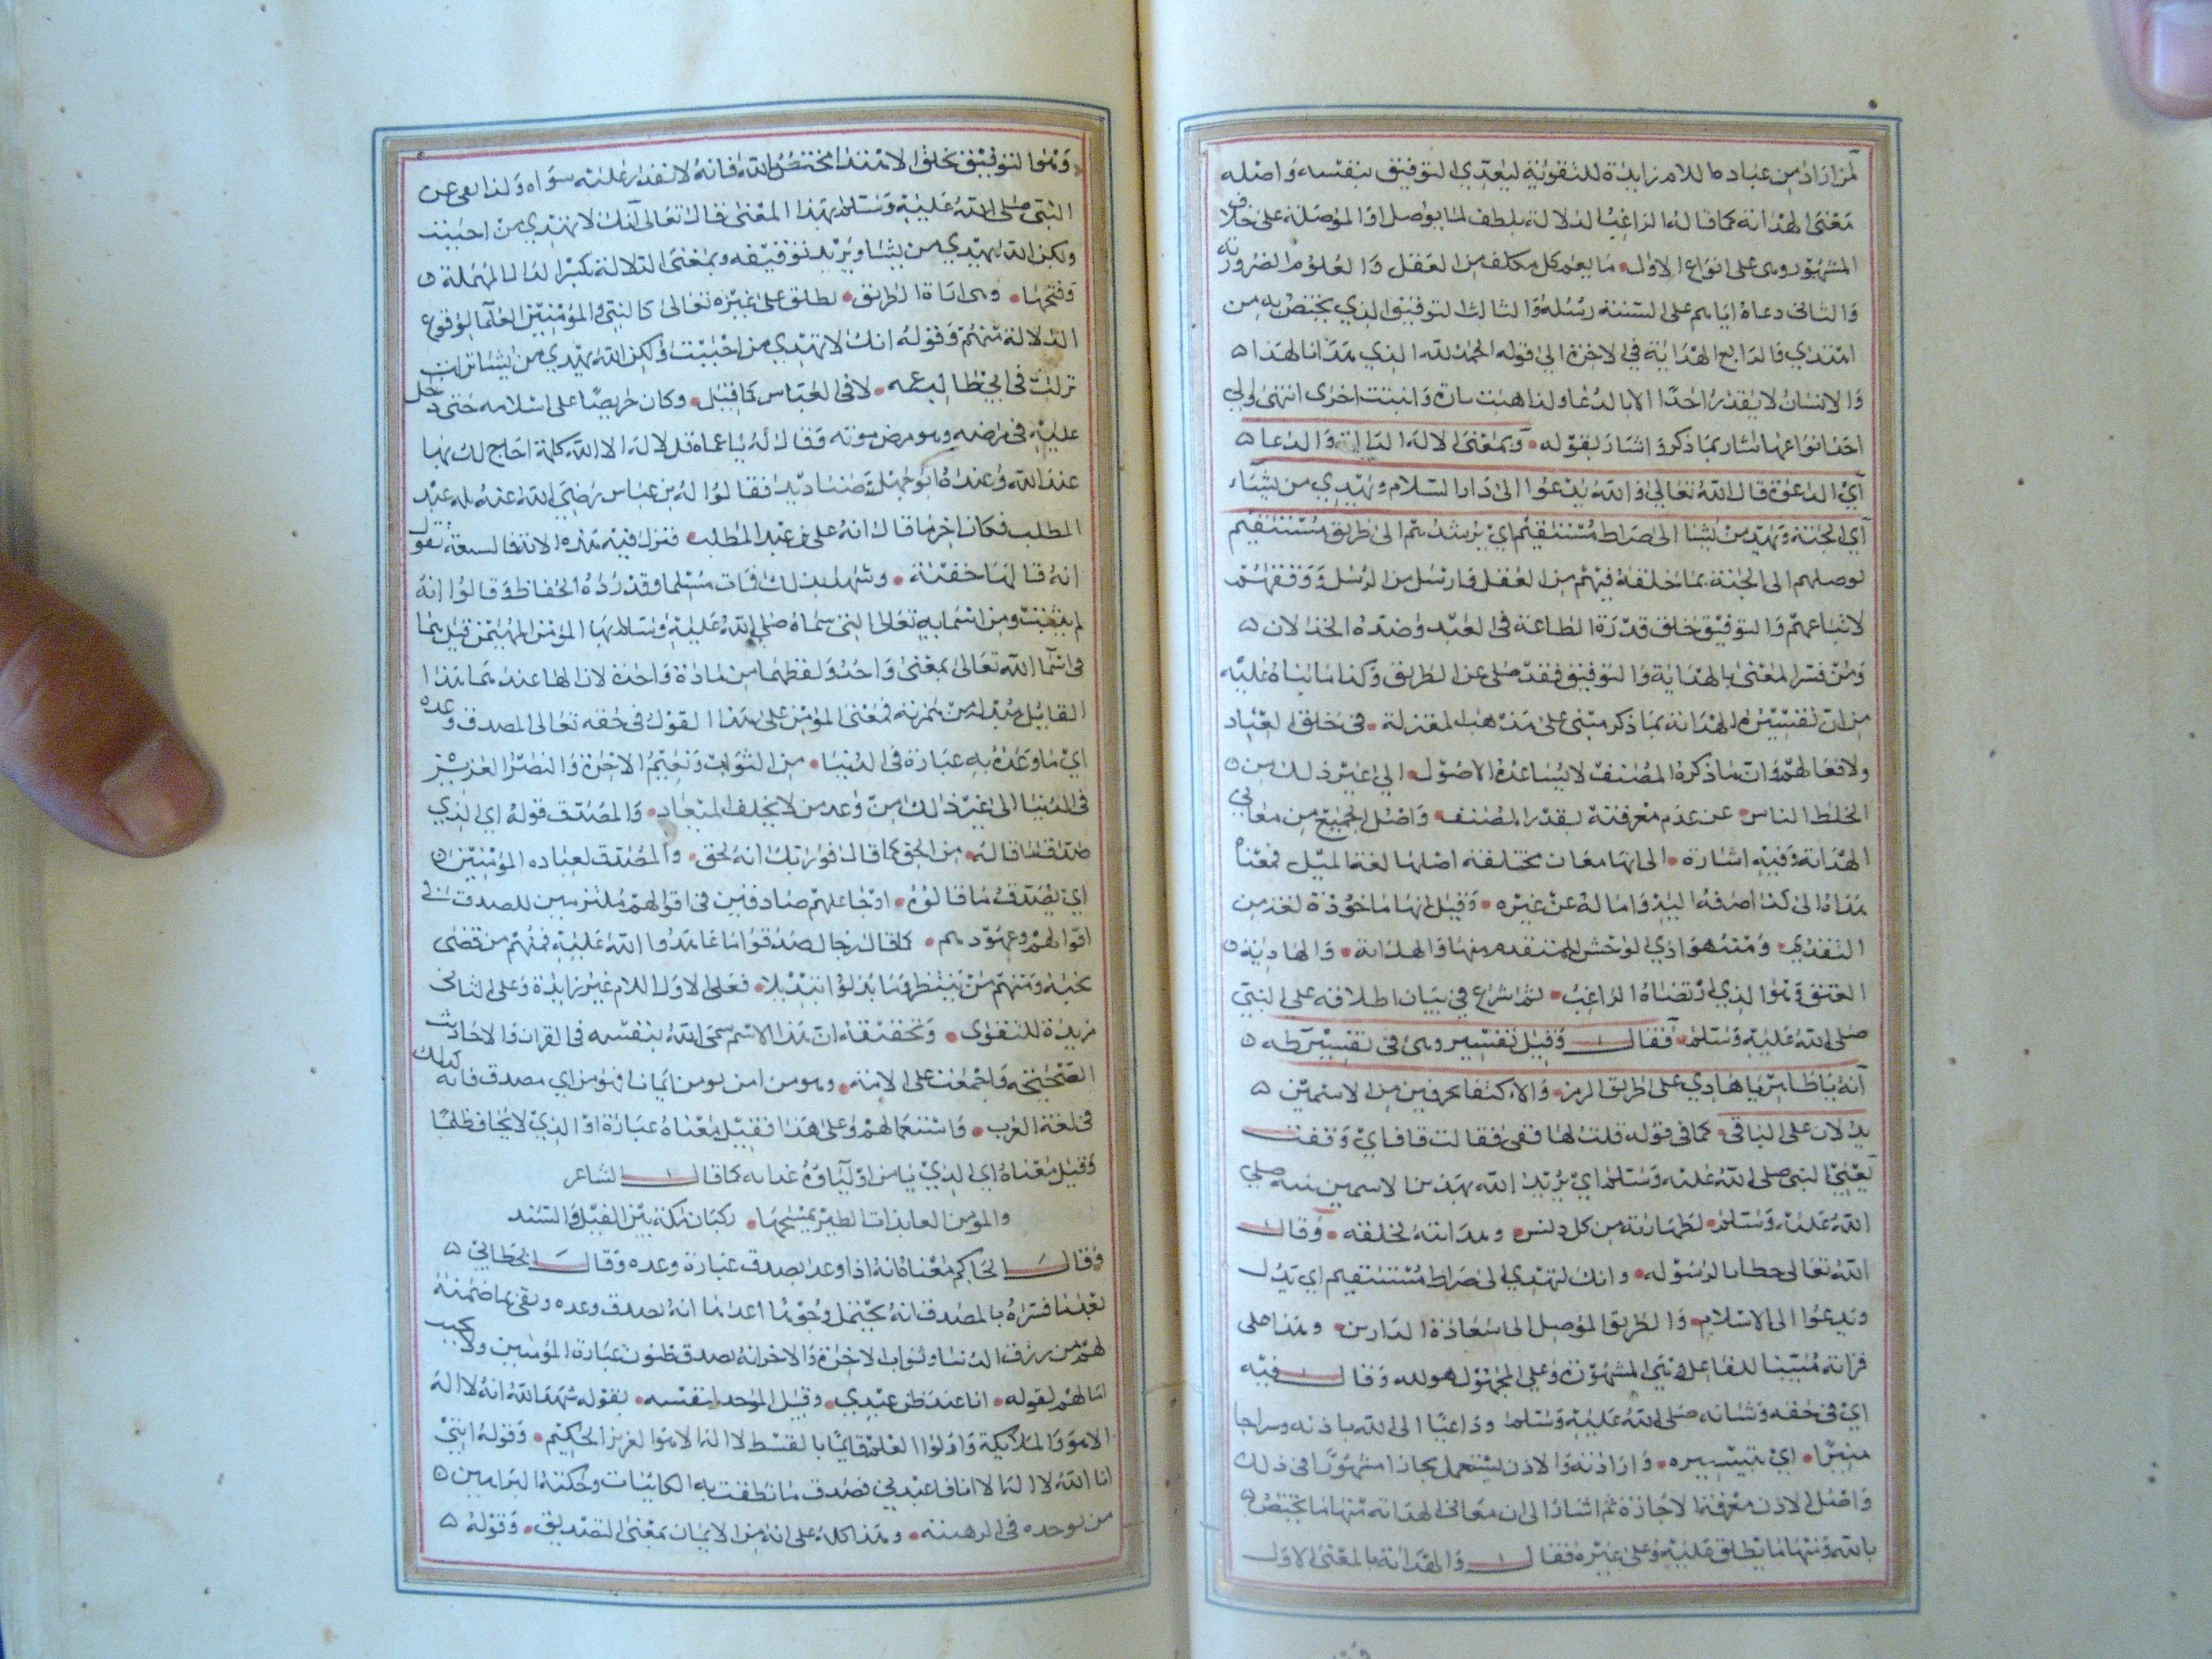 لمن اراد من عباده واللام زايدة للتقوية ليعدي التوفيق بنفسه واصله
معنى الهداية كما قاله الراغب الدلالة بلطف لما يوصل او الموصلة على خلاف
المشهور وهي على انواع الاول ما يعم كل مكلف من العقل والعلوم الضرورية
والثاني دعاه اياهم على السنة رسله والثالث التوفيق الذي يختص به من
اهتدي والرابع الهداية في الاخرة الى قوله الحمد لله الذي هدانا لهذا
والانسان لا يقدر احدا الا بالدعا ولذا اهبنت تارة وانبتت اخرى انتهى والي
احد انواعها اشار بما ذكر واشار بقوله وبمعنى الدلالة والدعا
اي الدعوة قال الله تعالى والله يدعوا الى دار السلام ويهدي من يشاء
اي الجنة ويهدي من يشا الى صراط مستقيم اي يرشدهم الى طريق مستقيم
يوصلهم الى الجنة بما خلقه فيهم من العقل وارسل من الرسل ووفقهم
لاتباعهم والتوفيق خلق قدرة الطاعة في العبد وضده الخذلان
ومن فسر المعنى بالهداية والتوفيق فقد ضل عن الطريق وكذا ما بناه عليه
من ان تفسير الهداية بما ذكر مبني على مذهب المعتزلة في خلق العباد
ولافعالهم وان ما ذكره المصنف لا يساعده الاصول الى غير ذلك من
الخلط الناس عن عدم معرفته بقدر المصنف واصل الجميع من معاني
الهداية وفيه اشارة الى انها معان مختلفة اصلها لغة الميل فمعناه
هداه الى كذا اصرفه اليه واماله عن غيره وقيل انها ماخوذة لغة من
التقدي ومنه هوادي الوحش للمتقدم منها والهداية والهادية
العنق وهوا الذي ارتضاه الراغب ثم اشرع في بيان اطلاقه على النبي
صلى الله عليه وسلم فقال وقيل تفسير وهي في تفسير طه
انه يا طاهر يا هادي على طريق الرمز والاكتفا بحرفين من الاسمين
يدلان على الباقي كما في قوله قلت لها قفي فقالت قاف اي وقفت
يعني النبي صلى الله عليه وسلم اي يريد الله بهذين الاسمين نبيه صلى
الله عليه وسلم لطهارته من كل دنس وهدايته لخلقه وقال
الله تعالى خطابا لرسوله وانك لتهدي الى صراط مستقيم اي تدل
وتدعوا الى الاسلام والطريق الموصل الى سعادة الدارين وهذا على
قراته مبنيا للفاعل وهي المشهورة وعلى المجهول هو لله وقال فيه
اي في حقه وشانه صلى الله عليه وسلم وداعيا الى الله باذنه وسراجا
منيرا اي بتيسيره وارادته والاذن يستعمل مجازا مشهورا في ذلك
واصل الاذن معرفة الاجازة ثم اشار الى ان معاني الهداية منها ما يختص
بالله ومنها ما يطلق عليه وعلى غيره فقال والهداية بالمعنى الاول
وهوا التوفيق بخلق الاهتدا يختص الله فانه لا يقدر عليه سواه ولذا نفي عن
النبي صلى الله عليه وسلم بهذا المعنى فقال تعالى انك لا تهتدي من احببت
ولكن الله يهدي من يشا ويريد توفيقه وبمعنى الدلالة بكسر الدال المهملة
وفتحها وهي اراة الطريق يطلق على غيره تعالى كالنبي والمؤمنين العلما لوقوع
الدلالة منهم وقوله انك لا تهدي من احببت ولكن الله يهدي من يشا
نزلت في ابي طالب عمه لا في العباس كما قيل وكان حريصا على اسلامه حتى دخل
عليه في مرضه وهو مرض موته فقال له يا عماه قل لا اله الا الله كلمة احاج لك بها
عند الله وعنده ابو جهل وصناديد فقالوا له بن عباس رضي الله عنه ملة عبد
المطلب فكان اخر ما قال انه على بن عبد المطلب فنزل فيه هذه الاية
انه قالها خفية وشهد بذلك فات مسلما وقد رده الحفاظ وقالوا انه
لم يثبت ومن اسمايه تعالى التي سماه صلى الله عليه وسلم بها المؤمن المهيمن قيل هما
في اسما الله تعالى بمعنى واحد ولفظهما من مادة واحدة لان الها عند هما هذا
القايل مبدل من همزة فمعنى المؤمن على هذا القول في حقه تعالى المصدق وعده
اي ما وعد به عباده في الدنيا من الثواب ونعيم الاخرة والنصر العزيز
في الدنيا الى غير ذلك من وعد من لا يخلف الميعاد والمصدق قوله اي الذي
صدق ما قاله من الحق كما قال فوربك انه لحق والمصدق لعباده المؤمنين
اي يصدق ما قالوه او جاعلهم صادقين في اقوالهم ملتزمين للصدق في
اقوالهم وعهودهم كما قال رجال صدقوا ما عاهدوا الله عليه فمنهم من قضى
نحبه ومنهم من ينتظر وما بدلوا تبديلا فعلى الاول اللام غير زايدة وعلى الثاني
مزيدة للتقوى وتحقيقه ان هذا الاسم سمى الله بنفسه في القران والاحاديث
الصحيحة واجمعت على الامة وهو من امن يومن ايمانا فهو من اي مصدق فانه كذلك
في لغة العرب واستعمالهم وعلى هذا فقيل معناه عباده او الذي لا يخاف ظلما
وقيل معناه اي الذي يامن اولياوه عذابه كما قال الشاعر
والمؤمن العايذات الطير يمسحها ركبان مكة بين الغيل والسند
وقال الحاكم معناه انه اذا وعد يصدق عباده وعده وقال الخطابي
بعد ما فسره بالمصدق انه يحتمل وجوها احدها انه يصدق وعده ويفي بما ضمنه
لهم من رزق الدنيا وثواب الاخرة والاخر انه يصدق ظنون عباده المؤمنين ولا يخيب
امالهم لقوله انا عند ظن عبدي وقيل الموحد نفسه بقوله شهد الله انه لا اله
الا هو والملائكة واولوا العلم قايما بالقسط لا اله الا هوا العزيز الحكيم وقوله انني
انا الله لا اله الا انا فاعبدني فصدق ما نطقت به الكاينات وحكته البراهين
من توحده في الوهيته وهذا كله على انه من الايمان بمعنى التصديق وقوله